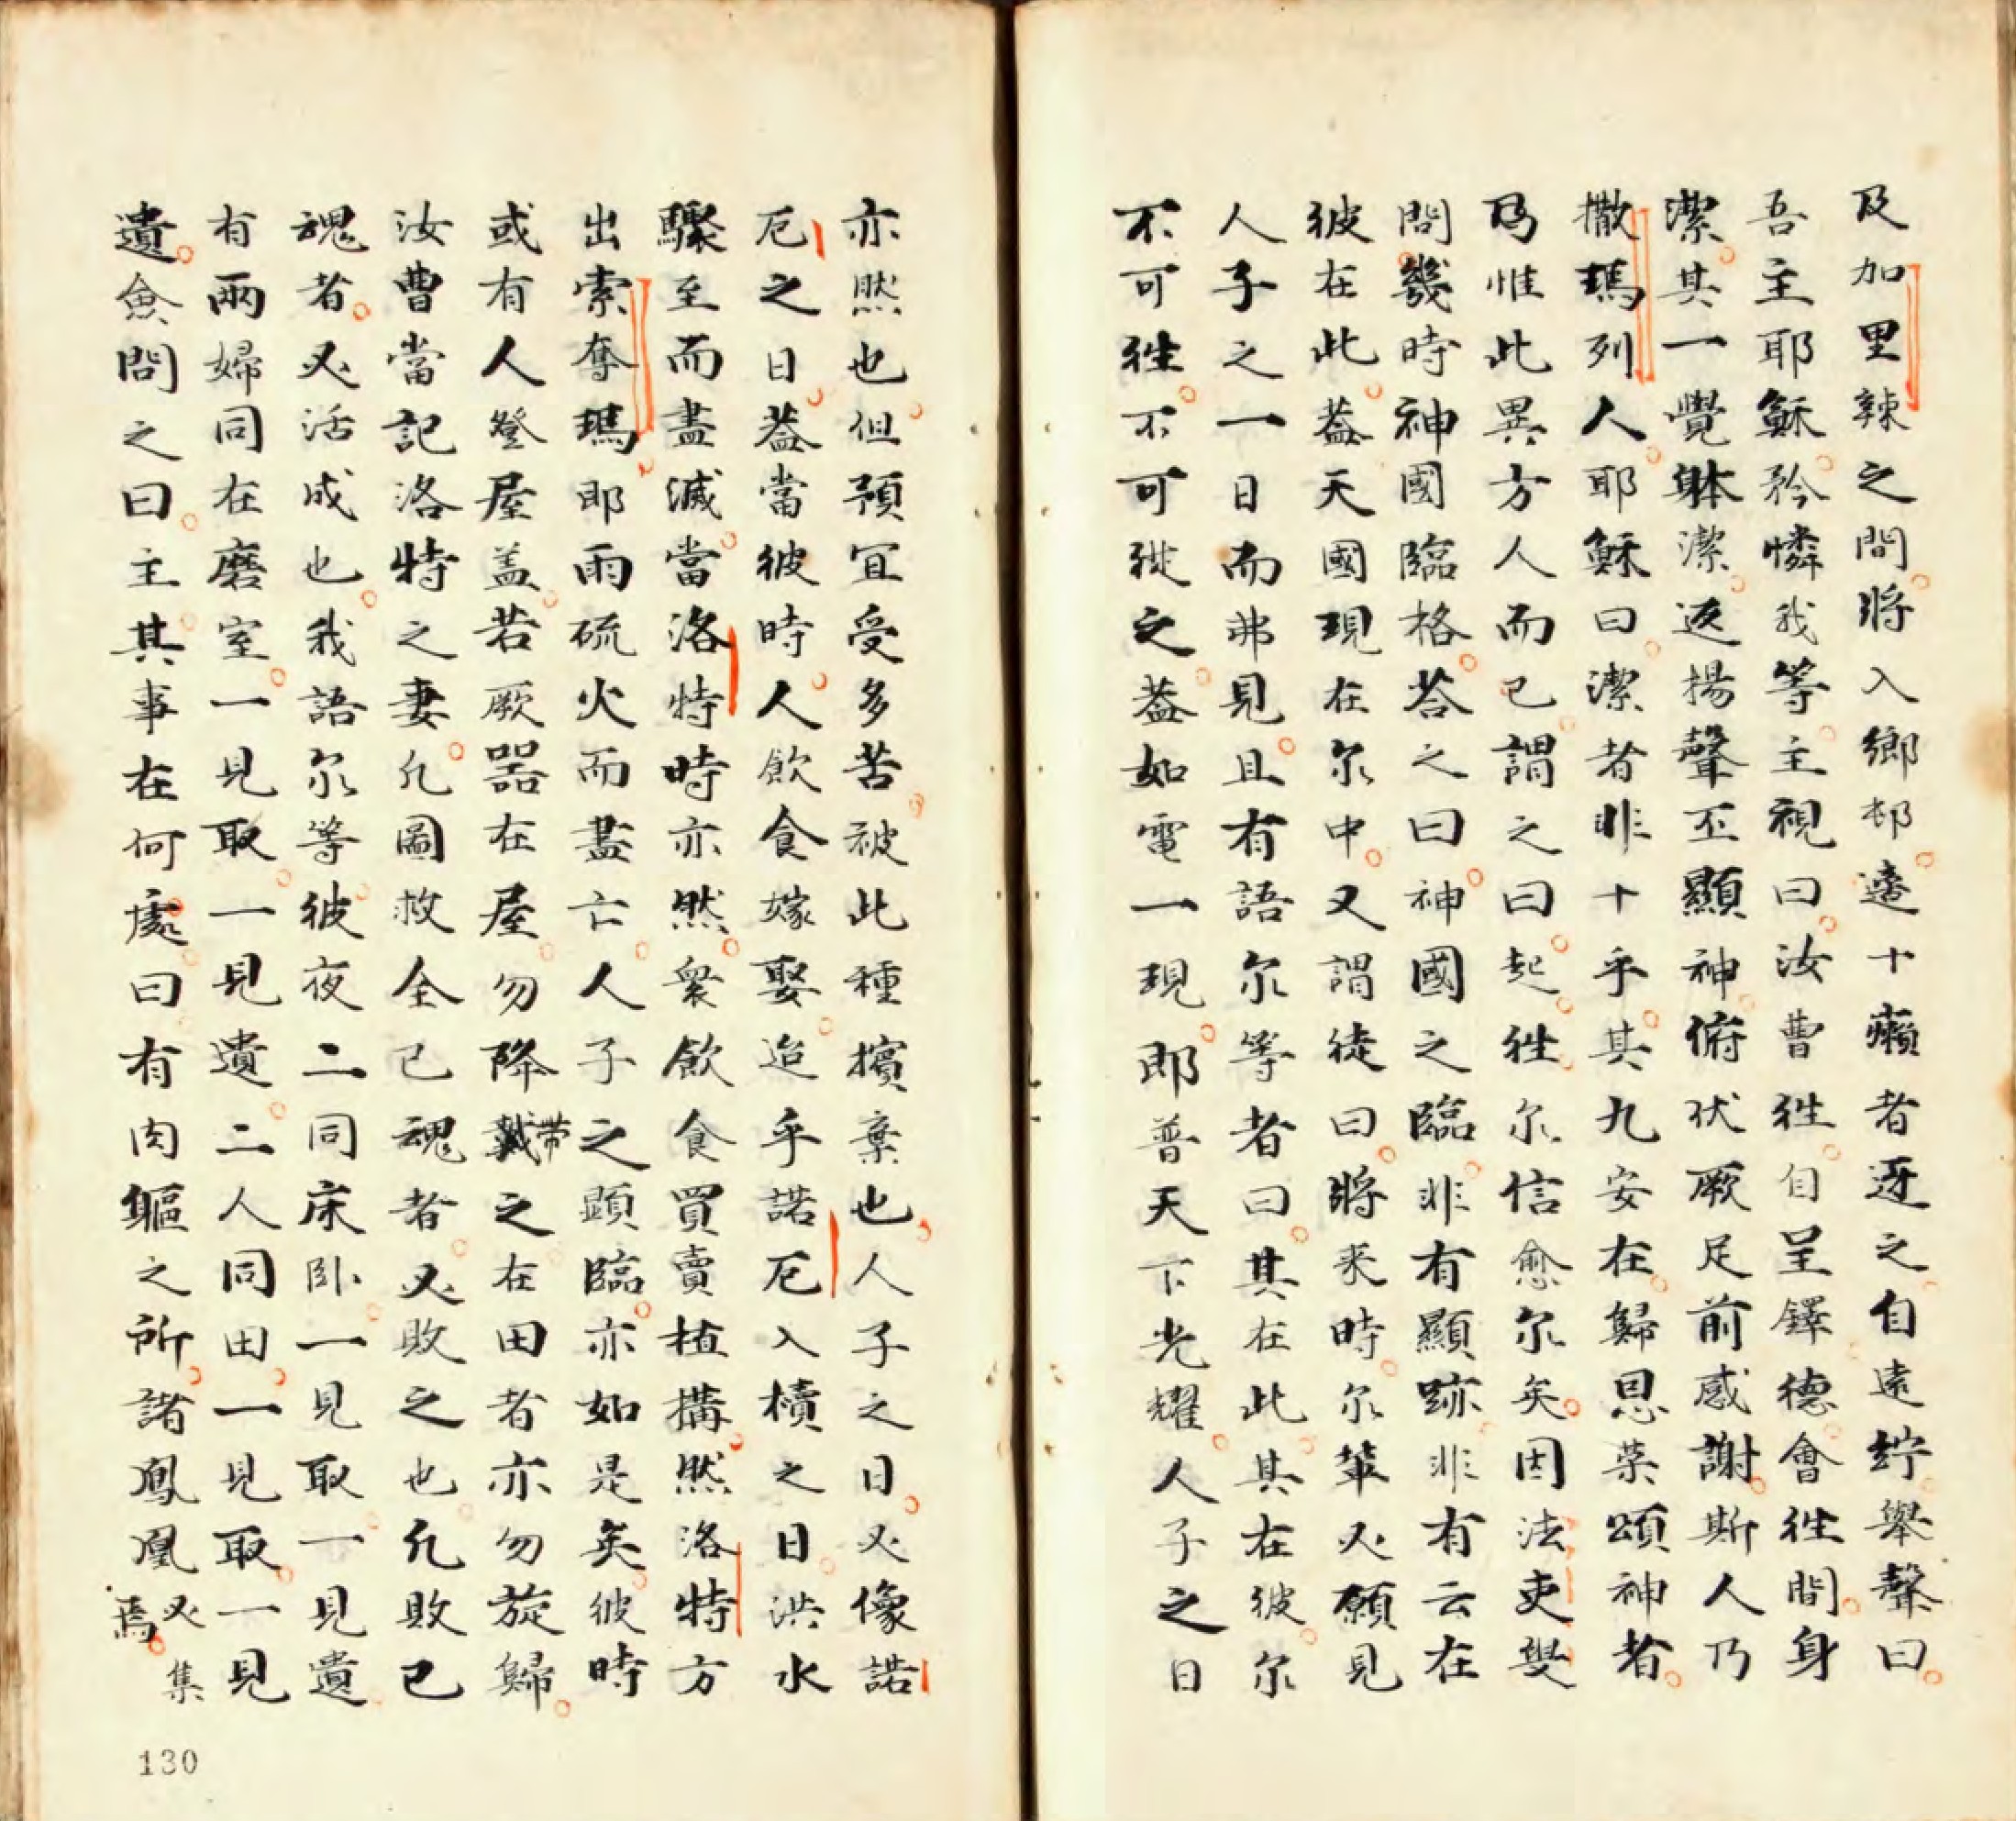 及加里辣之間將入鄉邨遼十癩者迓之自遠紵舉聲曰
吾主耶穌矜憐我等主視曰汝曹往自呈鐸德會往間身
潔其一覺躰潔返揚聲丕顯神俯伏厥足前感謝斯人乃
撒瑪列人耶穌曰潔者非十乎其九安在歸恩荣頌神者
乃惟此異方人而已謂之曰起往尔信愈尔矣因法吏嬰
問幾時神國臨格荅之曰神國之臨非有顯跡非有云在
彼在此葢天國現在尔中又謂徒曰將来時尔輩必願見
人子之一日而弗見且有語尔等者曰其在此其在彼尔
不可往不可從之葢如電一現即普天下光耀人子之日
亦然也但預宜受多苦被此種擯棄也人子之日必像諾
厄之日葢當彼時人飲食嫁娶迨乎諾厄入櫝之日洪水
驟至而盡滅當洛特時亦然衆飲食買賣植搆然洛特方
出索奪瑪即雨硫火而盡亡人子之顕臨亦如是矣彼時
或有人登屋盖若厥器在屋勿降戴帶之在田者亦勿旋歸
汝曹當記洛特之妻凢圖救全己魂者必敗之也凢敗己
魂者必活成也我語尔等彼夜二同床卧一見取一見遺
有兩婦同在磨室一見取一見遺二人同田一見取一見
遺僉問之曰主其事在何處曰有肉軀之所諸鳳凰必集焉
130